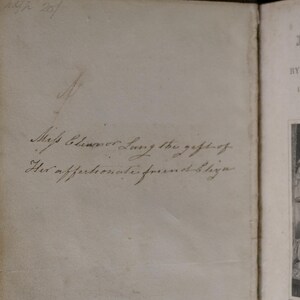 Miss Eleanor Lang the gift of
Her affectionate friend Eliza
BY